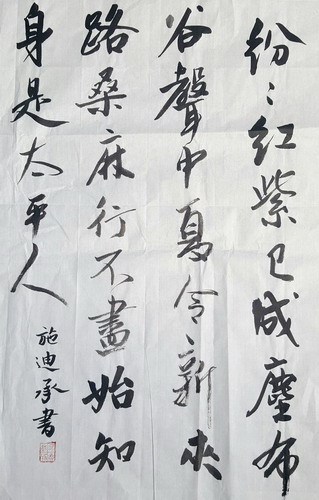 纷〻红紫已成塵布
谷聲中夏令新夾
路桑麻行不盡始知
身是太平人
施迪承書